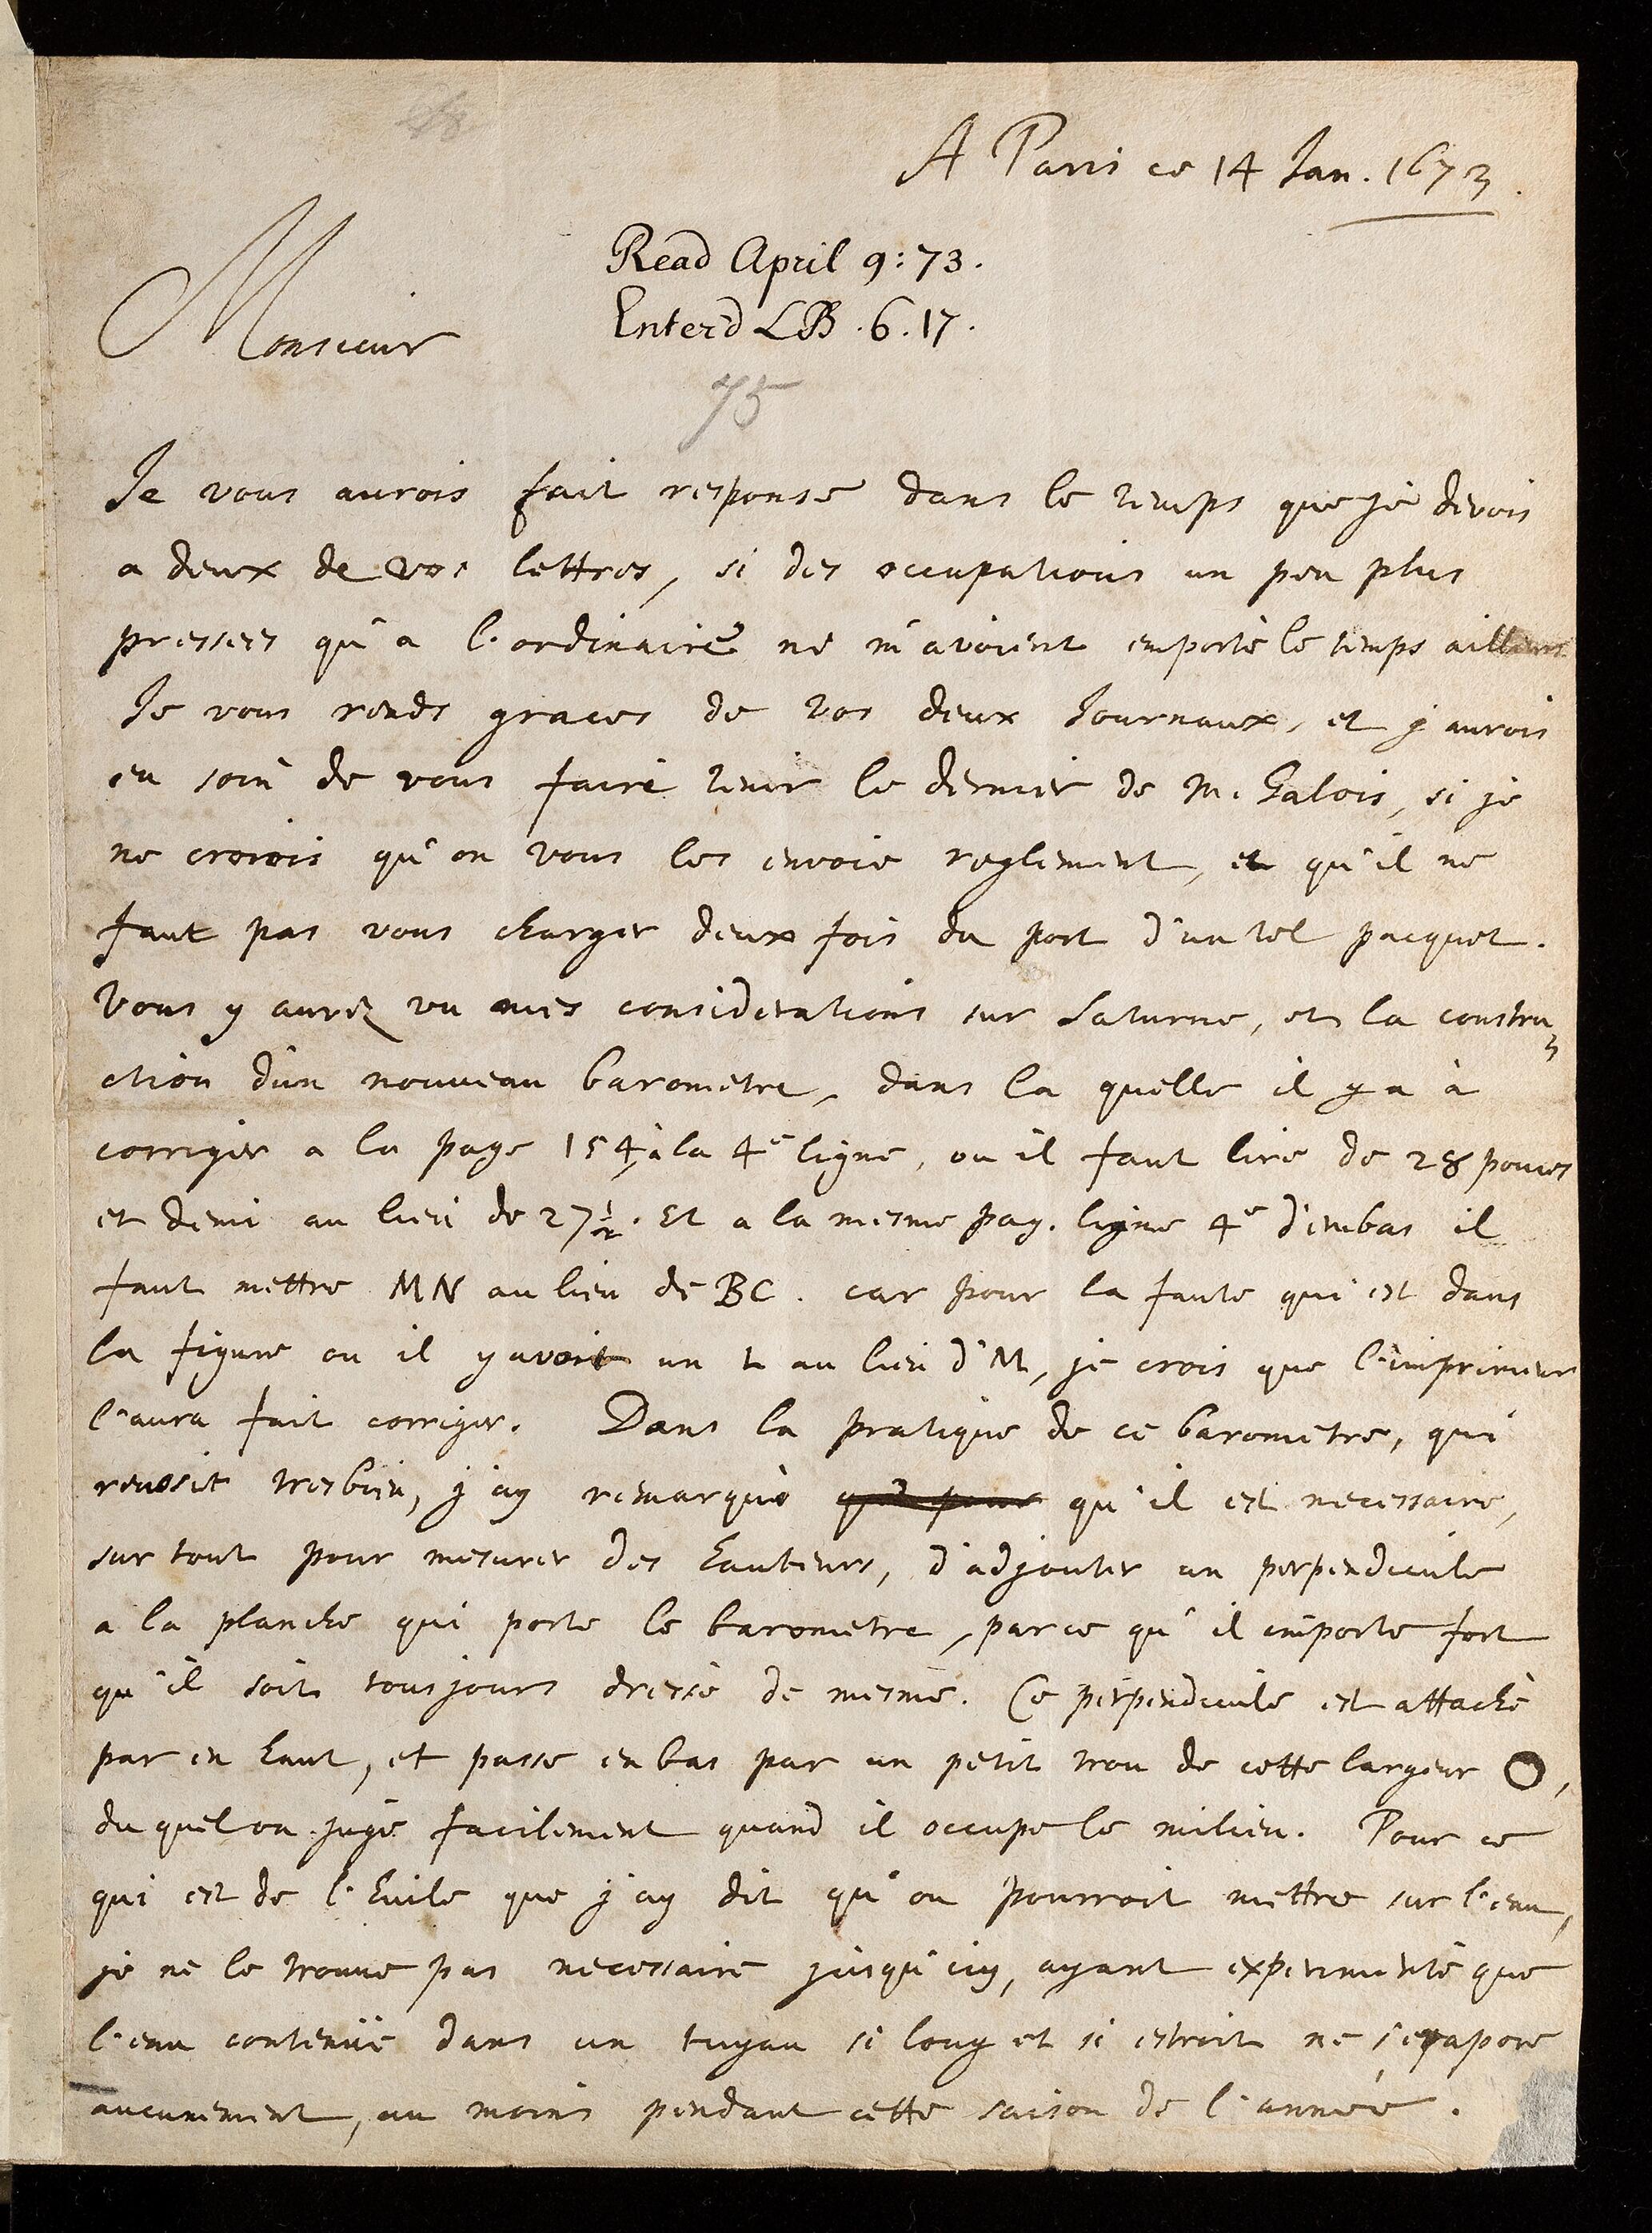 A Paris ce 14 Jan. 1673.
Read April 9: 73.
Enter'd LB. 6. 17.
Monsieur
75
Je vous aurois fait response dans le temps que je devois
a deux de vos lettres, si des occupations un peu plus
pressees qu'a l'ordinaire ne m'avoient emportè le temps ailleurs.
Je vous rends graces de vos deux Journaux, et j'aurois
eu soin de vous faire tenir le dernier de M. Galois, si je
ne croiois qu'on vous les envoie reglement, et qu'il ne
faut pas vous charger deux fois du port d'un tel pacquet.
Vous y aurez vu mes considerations sur Saturne, et la constru-
ction d'un nouveau barometre, dans la quelle il y a à
corriger a la page 154, à la 4e ligne, ou il faut lire de 28 pouces
et demi au lieu de 27 1/2. Et a la mesme pag. ligne 4e d'embas il
faut mettre MN au lieu de BC. car pour la faute qui est dans
la figure ou il y avoit un n au lieu d'M, je crois que l'imprimeur
l'aura fait corriger. Dans la pratique de ce barometre, qui
reussit tresbien, j'ay remarquè que pour qu'il est necessaire,
sur tout pour mesurer des hauteurs, d'adjouter un perpendicule
a la planche qui porte le barometre, parce qu'il importe fort
qu'il soit tousjours dressè de mesme. Ce perpendicule est attachè
par en haut, et passe en bas par un petit trou de cette largeur O,
du quel on juge facilement quand il occupe le milieu. Pour ce
qui est de l'huile que j'ay dit qu'on pourroit mettre sur l'eau,
je ne le trouve pas necessaire jusqu'icy, ayant experimentè que
l'eau contenüe dans un tuyau si long et si estroit ne s'evapore
aucunement, au moins pendant cette saison de l'année.